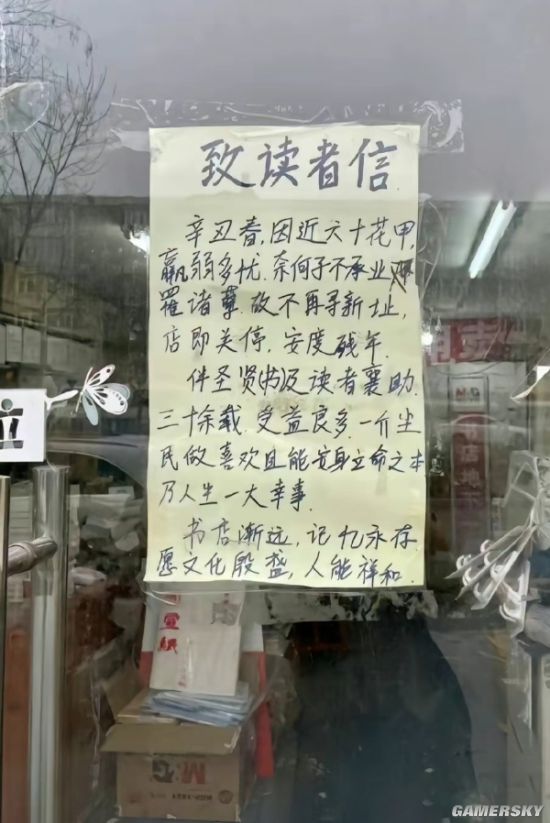 致读者信
辛丑春,因近六十花甲,
羸弱多忧.奈何子不承业
罹诸孽.故不再寻新址,
店即关停,安度残年.
伴圣贤(书)及读者襄助.
三十余载.受益良多.一介尘
民做喜欢且能安身立命之本
乃人生一大幸事.
书店渐远,记忆永存
愿文化殷盛,人能祥和.
宣紙
M&G
GAMERSKY